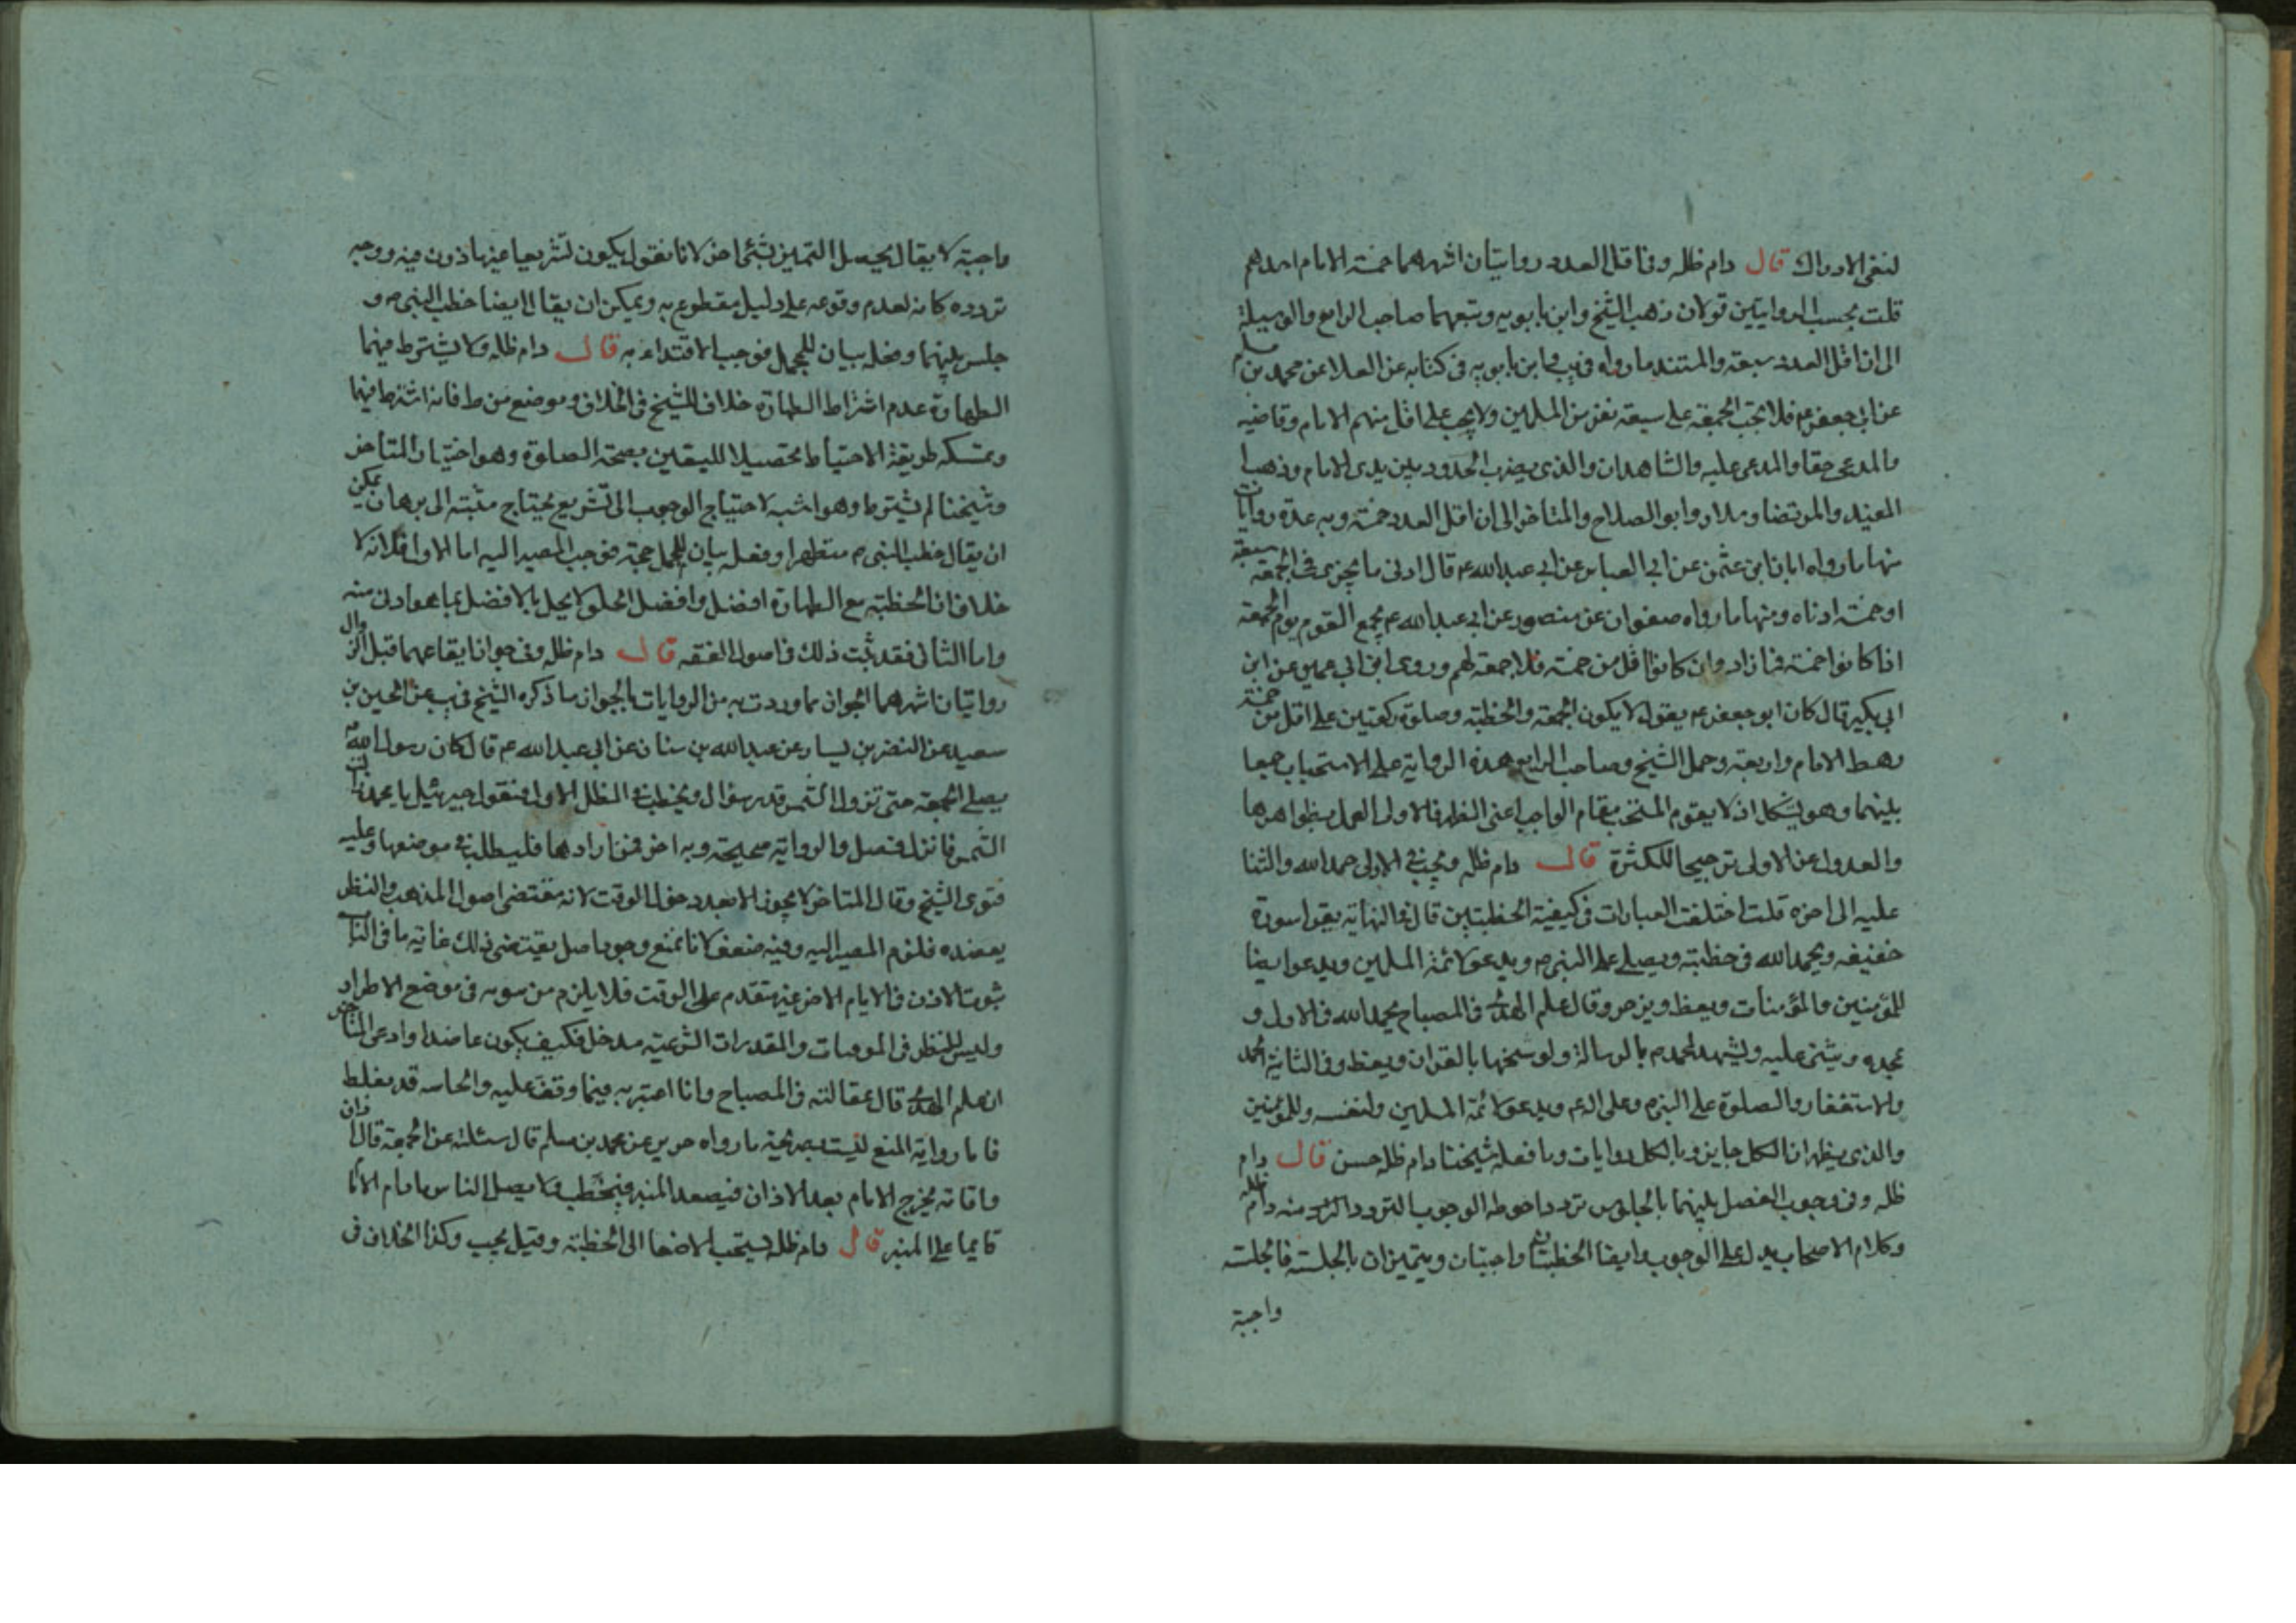 لنفى الادراك قال دام ظله وفى اقل العدد روايتان اشهرهما خمسة الامام احدهم
قلت بحسب الروايتين قولان ذهب الشيخ وابن بابويه وتبعهما صاحب الرايع والوسيلة
الى ان اقل العدد سبعة والمستند ما رواه فى يب وابن بابويه فى كتابه عن العلا عن محمد بن مسلم
عن ابى جعفر ع فلا تجب الجمعة على سبعة نفر من المسلمين ولا يجب على اقل منهم الامام وقاضيه
والمدعى حقا والمدعى عليه والشاهدان والذى يضرب الحدود بين يدى الامام وذهب
المفيد والمرتضى وسلار وابو الصلاح والمتاخر الى ان اقل العدد خمسة وبه عدة روايات
منها ما رواه ابان ابن عثمن عن ابى العباس عن ابى عبد الله ع قال ادنى ما يجزى فى الجمعة سبعة
او خمسة ادناه ومنها ما رواه صفوان عن منصور عن ابى عبد الله ع يجمع القوم يوم الجمعة
اذا كانوا خمسة فما زاد وان كانوا اقل من خمسة فلا جمعة لهم وروى ابن ابى عمير عن ابن
ابى بكير قال كان ابو جعفر ع يقول لا يكون الجمعة والخطبة وصلوة ركعتين على اقل من خمسة
رهط الامام واربعة وحمل الشيخ وصاحب الرايع هذه الرواية على الاستحباب جمعا
بينهما وهو يشكل اذ لا يقوم المستحب مقام الواجب اعنى الظهر فالاولى العمل بظواهرها
والعدول عن الاولى ترجيحا للكثرة قال دام ظله ويجب فى الاولى حمد الله والثنا
عليه الى اخره قلت اختلفت العبارات فى كيفية الخطبتين قال فى النهاية يقرا سورة
خفيفه ويحمد الله فى خطبته ويصلى على النبى ص ويدعو لائمة المسلمين ويدعو ايضا
للمؤمنين والمؤمنات ويعظ ويزجر وقال علم الهدى فى المصباح يحمد الله فى الاول و
يمجده ويثنى عليه ويشهد لمحمد ص بالرسالة ويوشحها بالقران ويعظ وفى الثانية الحمد
والاستغفار والصلوة على النبى ص وعلى اله ع ويدعو لائمة المسلمين ولنفسه وللمؤمنين
والذى يظهر ان الكل جايز وبالكل روايات وما فعله شيخنا دام ظله حسن قال دام
ظله وفى وجوب الفصل بينهما بالجلوس تردد احوطه الوجوب التردد منه دام ظله
وكلام الاصحاب يدل على الوجوب وايضا الخطبتان واجبتان ويتميزان بالجلسة فالجلسة
واجبة
واجبة لا يقال يحصل التميز بشئ اخر لانا نقول يكون تشريعا غير ماذون فيه ووجه
تردده كانه لعدم وقوعه على دليل مقطوع به ويمكن ان يقال ايضا خطب النبى ص و
جلس بينهما وفعله بيان للمجمل فوجب الاقتداء به قال دام ظله ولا يشترط فيهما
الطهارة عدم اشتراط الطهارة خلاف للشيخ فى الخلاف وموضع من ط فانه اشترط فيهما
وتمسكه طريقة الاحتياط تحصيلا لليقين بصحة الصلوة وهو اختيار المتاخر
وشيخنا لم يشترط وهو اشبه لاحتياج الوجوب الى تشريع يحتاج مثبته الى برهان يمكن
ان يقال خطب النبى ص متطهرا وفعله بيان للمجمل حجة فوجب المصير اليه اما الاول فلانه لا
خلاف ان الخطبة مع الطهارة افضل وافضل الخلق لا يخل بالافضل بما هو ادنى منه
واما الثانى فقد ثبت ذلك فى اصول الفقه قال دام ظله وفى جواز ايقاعهما قبل الزوال
روايتان اشهرهما الجواز مما وردت به من الروايات بالجواز ما ذكره الشيخ فى يب عن الحسين بن
سعيد عن النضر بن يسار عن عبد الله بن سنان عن ابى عبد الله ع قال كان رسول الله ص
يصلى الجمعة حتى تزول الشمس قدر شراك ويخطب فى الظل الاول فيقول جبرئيل يا محمد زالت
الشمس فانزل فصل والرواية صحيحة وبه اخر فمن ارادها فليطلب فى موضعها وعليه
فتوى الشيخ وقال المتاخر لا يجوز الا بعد دخول الوقت لانه مقتضى اصول المذهب والنظر
يعضده فلزم المصير اليه وفيه ضعف لانا نمنع وجود اصل يقتضى ذلك غاية ما فى الباب
ثبوت الاذن فى الايام الاخر غير متقدم على الوقت فلا يلزم من سوبه فى موضع الاطراد
وليس للنظر فى الموهبات والمقدرات الشرعية مدخل فكيف يكون عاضدا وادعى المتاخر
ان علم الهدى قال بمقالته فى المصباح وانا اعتبر به فيما وقف عليه والحاسه قد يغلط
فاما رواية المنع ليست بصريحة ما رواه حريز عن محمد بن مسلم قال سئلته عن الجمعة قال اذان
واقامة يخرج الامام بعد الاذان فيصعد المنبر فيخطب ولا يصلى الناس ما دام الامام
قايما على المنبر قال دام ظله يستحب الاصغا الى الخطبة وقيل يجب وكذا الخلاف فى